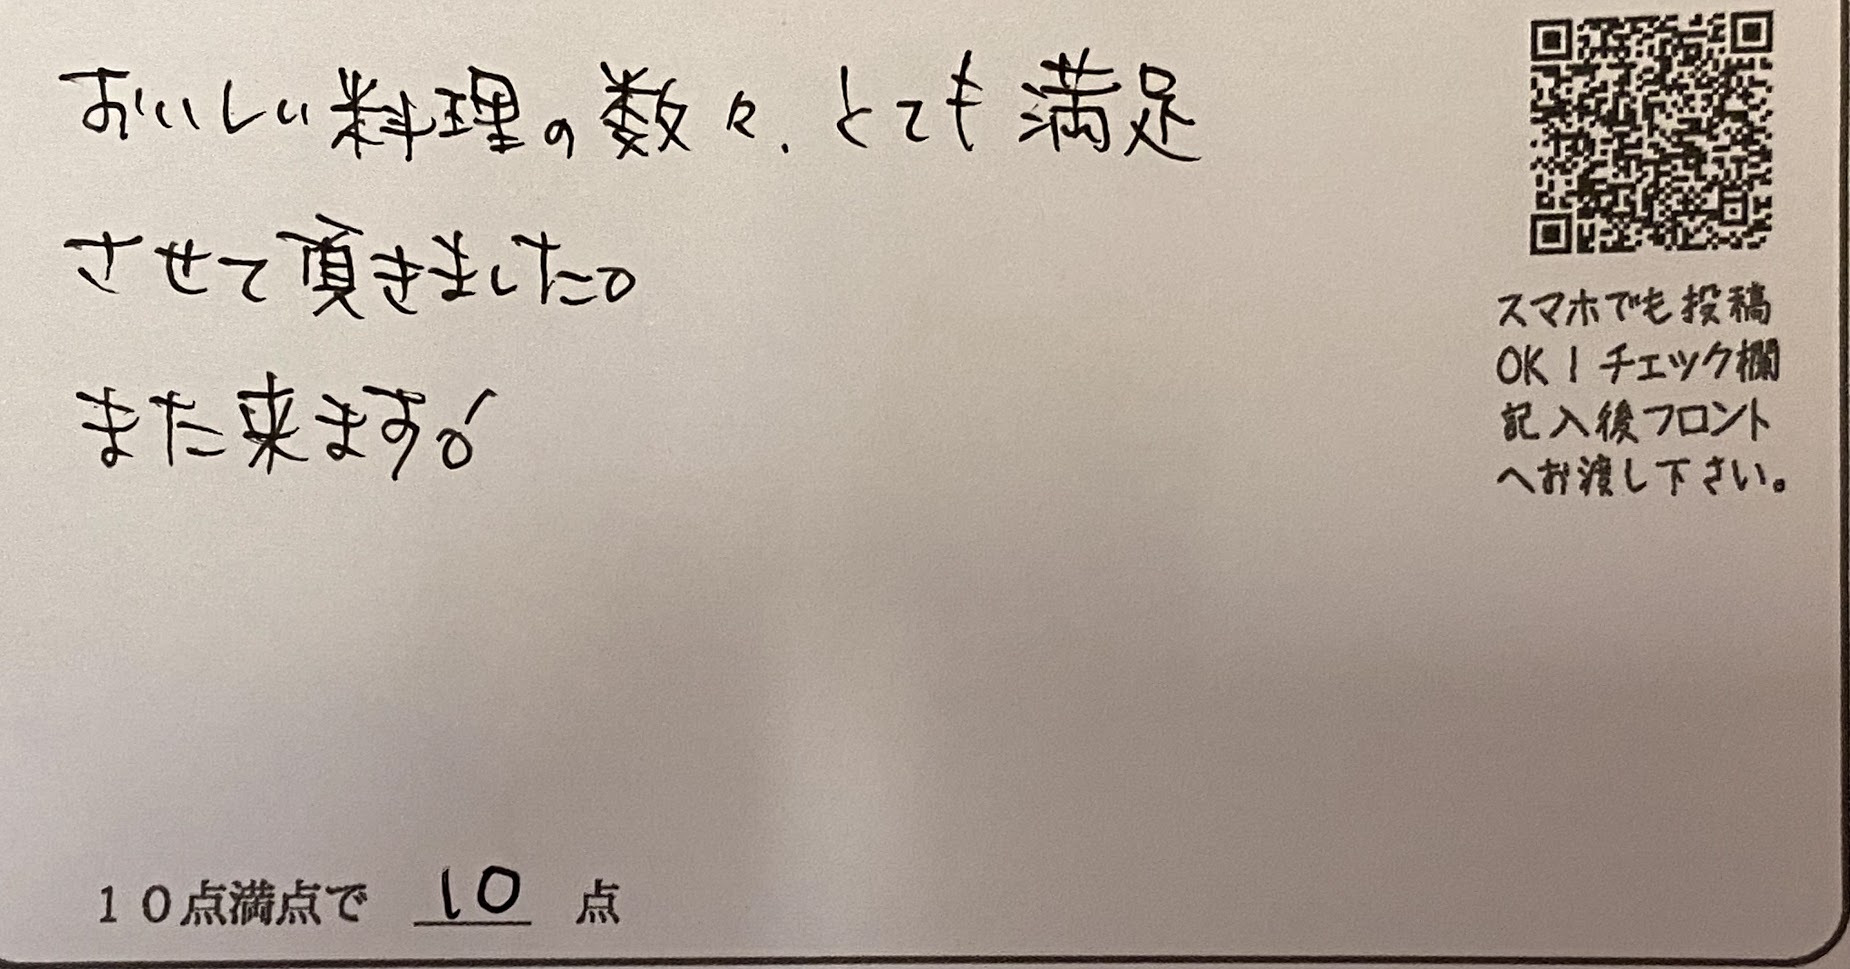 おいしい料理の数々、とても満足
させて頂きました。
また来ます!
スマホでも投稿
OK!チェック欄
記入後フロント
へお渡し下さい。
10点満点で 10 点